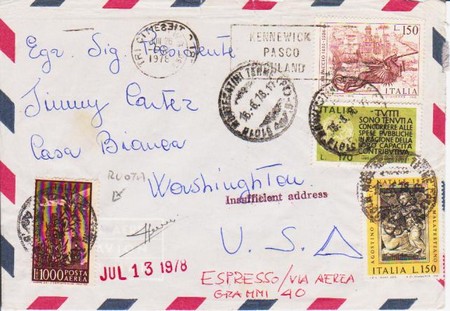 Egr. Sig. Presidente
Jimmy Carter
Casa Bianca
Washington
U.S.A
Insufficient address
ESPRESSO/VIA AEREA
GRAMMI 40
JUL 13 1978
TRI CITIES
1978
KENNEWICK
PASCO
RICHLAND
MONTECATINI TERME
ITALIA
L.150
ITALIA
TUTTI
SONO TENUTI A
CONCORRERE ALLE
SPESE PUBBLICHE
IN RAGIONE DELLA
LORO CAPACITÀ
CONTRIBUTIVA
L. 170
ITALIA L.150
L.1000 POSTA
AEREA